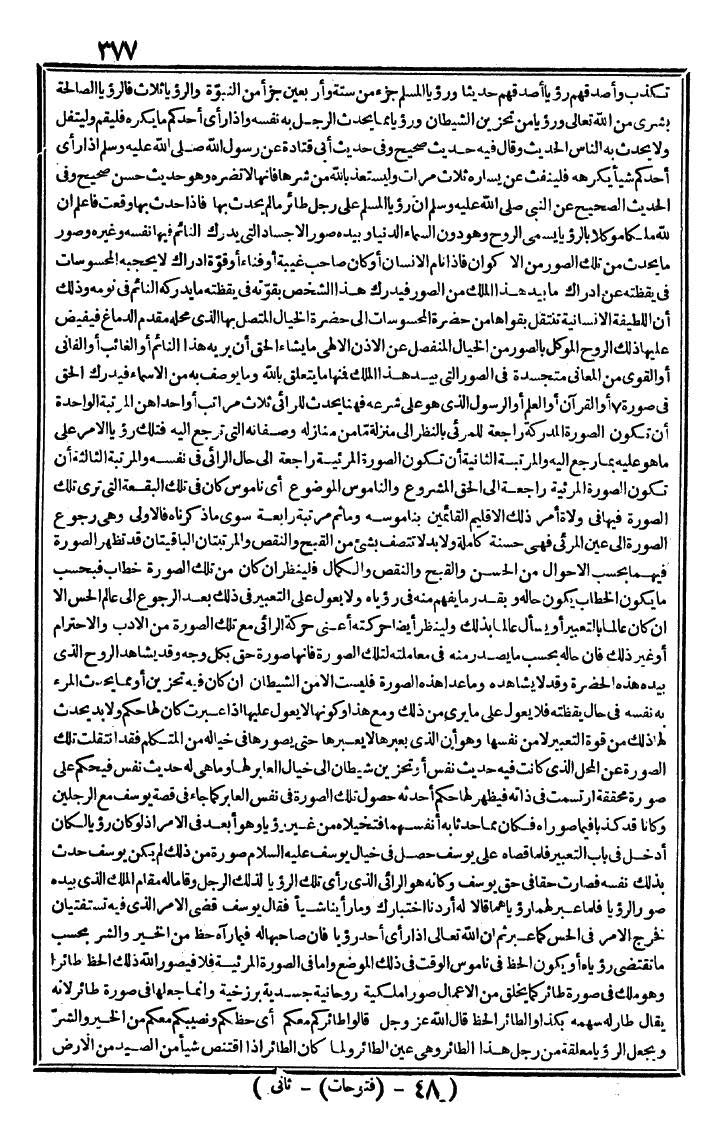 ٣٧٧
تكذب وأصدقهم رؤيا أصدقهم حديثا ورؤيا المسلم جزء من ستة وأربعين جزأ من النبوّة والرؤيا ثلاث فالرؤيا الصالحة
بشرى من الله تعالى ورؤيا من تحزين الشيطان ورؤيا مما يحدث الرجل به نفسه واذا رأى أحدكم ما يكره فليقم وليتفل
ولا يحدث به الناس الحديث وقال فيه حديث صحيح وفى حديث أبى قتادة عن رسول الله صلى الله عليه وسلم اذا رأى
أحدكم شيأ يكرهه فلينفث عن يساره ثلاث مرات وليستعذ بالله من شرها فانها لا تضره وهو حديث حسن صحيح وفى
الحديث الصحيح عن النبى صلى الله عليه وسلم ان رؤيا المسلم على رجل طائر مالم يحدث بها فاذا حدث بها وقعت فاعلم ان
لله ملكا موكلا بالرؤيا يسمى الروح وهو دون السماء الدنيا وبيده صور الاجساد التى يدرك النائم فيها نفسه وغيره وصور
ما يحدث من تلك الصور من الاكوان فاذا نام الانسان أو كان صاحب غيبة أو فناء أو قوّة ادراك لا يحجبه المحسوسات
فى يقظته عن ادراك ما بيد هذا الملك من الصور فيدرك هذا الشخص بقوّته فى يقظته ما يدركه النائم فى نومه وذلك
أن اللطيفة الانسانية تنتقل بقواها من حضرة المحسوسات الى حضرة الخيال المتصل بها الذى محله مقدم الدماغ فيفيض
عليها ذلك الروح الموكل بالصور من الخيال المنفصل عن الاذن الالهى ما يشاء الحق أن يريه هذا النائم أو الغائب أو الفانى
أو القوى من المعانى متجسدة فى الصور التى بيد هذا الملك فنها ما يتعلق بالله وما يوصف به من الاسماء فيدرك الحق
فى صورة ٧ أو القرآن أو العلم أو الرسول الذى هو على شرعه فهنا يحدث للرائى ثلاث مراتب أو احداهن المرتبة الواحدة
أن تكون الصورة المدركة راجعة للمرئى بالنظر الى منزلة ما من منازله وصفاته التى ترجع اليه فتلك رؤيا الامر على
ما هو عليه بما يرجع اليه والمرتبة الثانية أن تكون الصورة المرئية راجعة الى حال الرائى فى نفسه والمرتبة الثالثة أن
تكون الصورة المرئية راجعة الى الحق المشروع والناموس الموضوع أى ناموس كان فى تلك البقعة التى ترى تلك
الصورة فيها فى ولاة أمر ذلك الاقليم القائمين بناموسه وماثم مرتبة رابعة سوى ماذكرناه فالاولى وهى رجوع
الصورة الى عين المرئى فهى حسنة كاملة ولابد لا تتصف بشئ من القبح والنقص والمرتبتان الباقيتان قد تظهر الصورة
فيهما بحسب الاحوال من الحسن والقبح والنقص والكمال فلينظر ان كان من تلك الصورة خطاب فبحسب
ما يكون الخطاب يكون حاله وبقدر ما يفهم منه فى رؤياه ولا يعول على التعبير فى ذلك بعد الرجوع الى عالم الحس الا
ان كان عالما بالتعبير أو يسأل عالما بذلك ولينظر أيضا حركته أعنى حركة الرائى مع تلك الصورة من الادب والاحترام
أو غير ذلك فان حاله بحسب ما يصدر منه فى معاملته لتلك الصورة فانها صورة حق بكل وجه وقد يشاهد الروح الذى
بيده هذه الحضرة وقد لا يشاهده وماعدا هذه الصورة فليست الا من الشيطان ان كان فيه تحزين أو مما يحدث المرء
به نفسه فى حال يقظته فلا يعول على ما يرى من ذلك ومع هذا وكونها لا يعول عليها اذا عبرت كان لها حكم ولابد يحدث
لها ذلك من قوة التعبير لا من نفسها وهو أن الذى يعبرها لا يعبرها حتى يصورها فى خياله من المتكلم فقد انتقلت تلك
الصورة عن المحل الذى كانت فيه حديث نفس أو تحزين شيطان الى خيال العابر لها وماهى له حديث نفس فيحكم على
صورة محققة ارتسمت فى ذاته فيظهر لها حكم أحدثه حصول تلك الصورة فى نفس العابر كما جاء فى قصة يوسف مع الرجلين
وكانا قد كذبا فيما صوراه فكان مما حدثا به أنفسهما فتخيلاه من غير رؤيا وهو أبعد فى الامر اذ لو كان رؤيا لكان
أدخل فى باب التعبير فلما قصاه على يوسف حصل فى خيال يوسف عليه السلام صورة من ذلك لم يكن يوسف حدث
بذلك نفسه فصارت حقا فى حق يوسف وكانه هو الرائى الذى رأى تلك الرؤيا لذلك الرجل وقاما له مقام الملك الذى بيده
صور الرؤيا فلما عبر لهما رؤياهما قالا له أردنا اختبارك وما رأينا شيأ فقال يوسف قضى الامر الذى فيه تستفتيان
فخرج الامر فى الحس كما عبر ثم ان الله تعالى اذا رأى أحد رؤيا فان صاحبها له فيما رآه حظ من الخير والشر بحسب
ما تقتضى رؤياه أو يكون الحظ فى ناموس الوقت فى ذلك الموضع واما فى الصورة المرئية فلا فيصور الله ذلك الحظ طائرا
وهو ملك فى صورة طائر كما يخلق من الاعمال صورا ملكية روحانية جسدية برزخية وانما جعلها فى صورة طائر لانه
يقال طار له سهمه بكذا والطائر الحظ قال الله عز وجل قالوا طائركم معكم أى حظكم ونصيبكم معكم من الخير والشرّ
ويجعل الرؤيا معلقة من رجل هذا الطائر وهى عين الطائر ولما كان الطائر اذا اقتنص شيأ من الصيد من الارض
(٤٨ - (فتوحات) - ثانى)